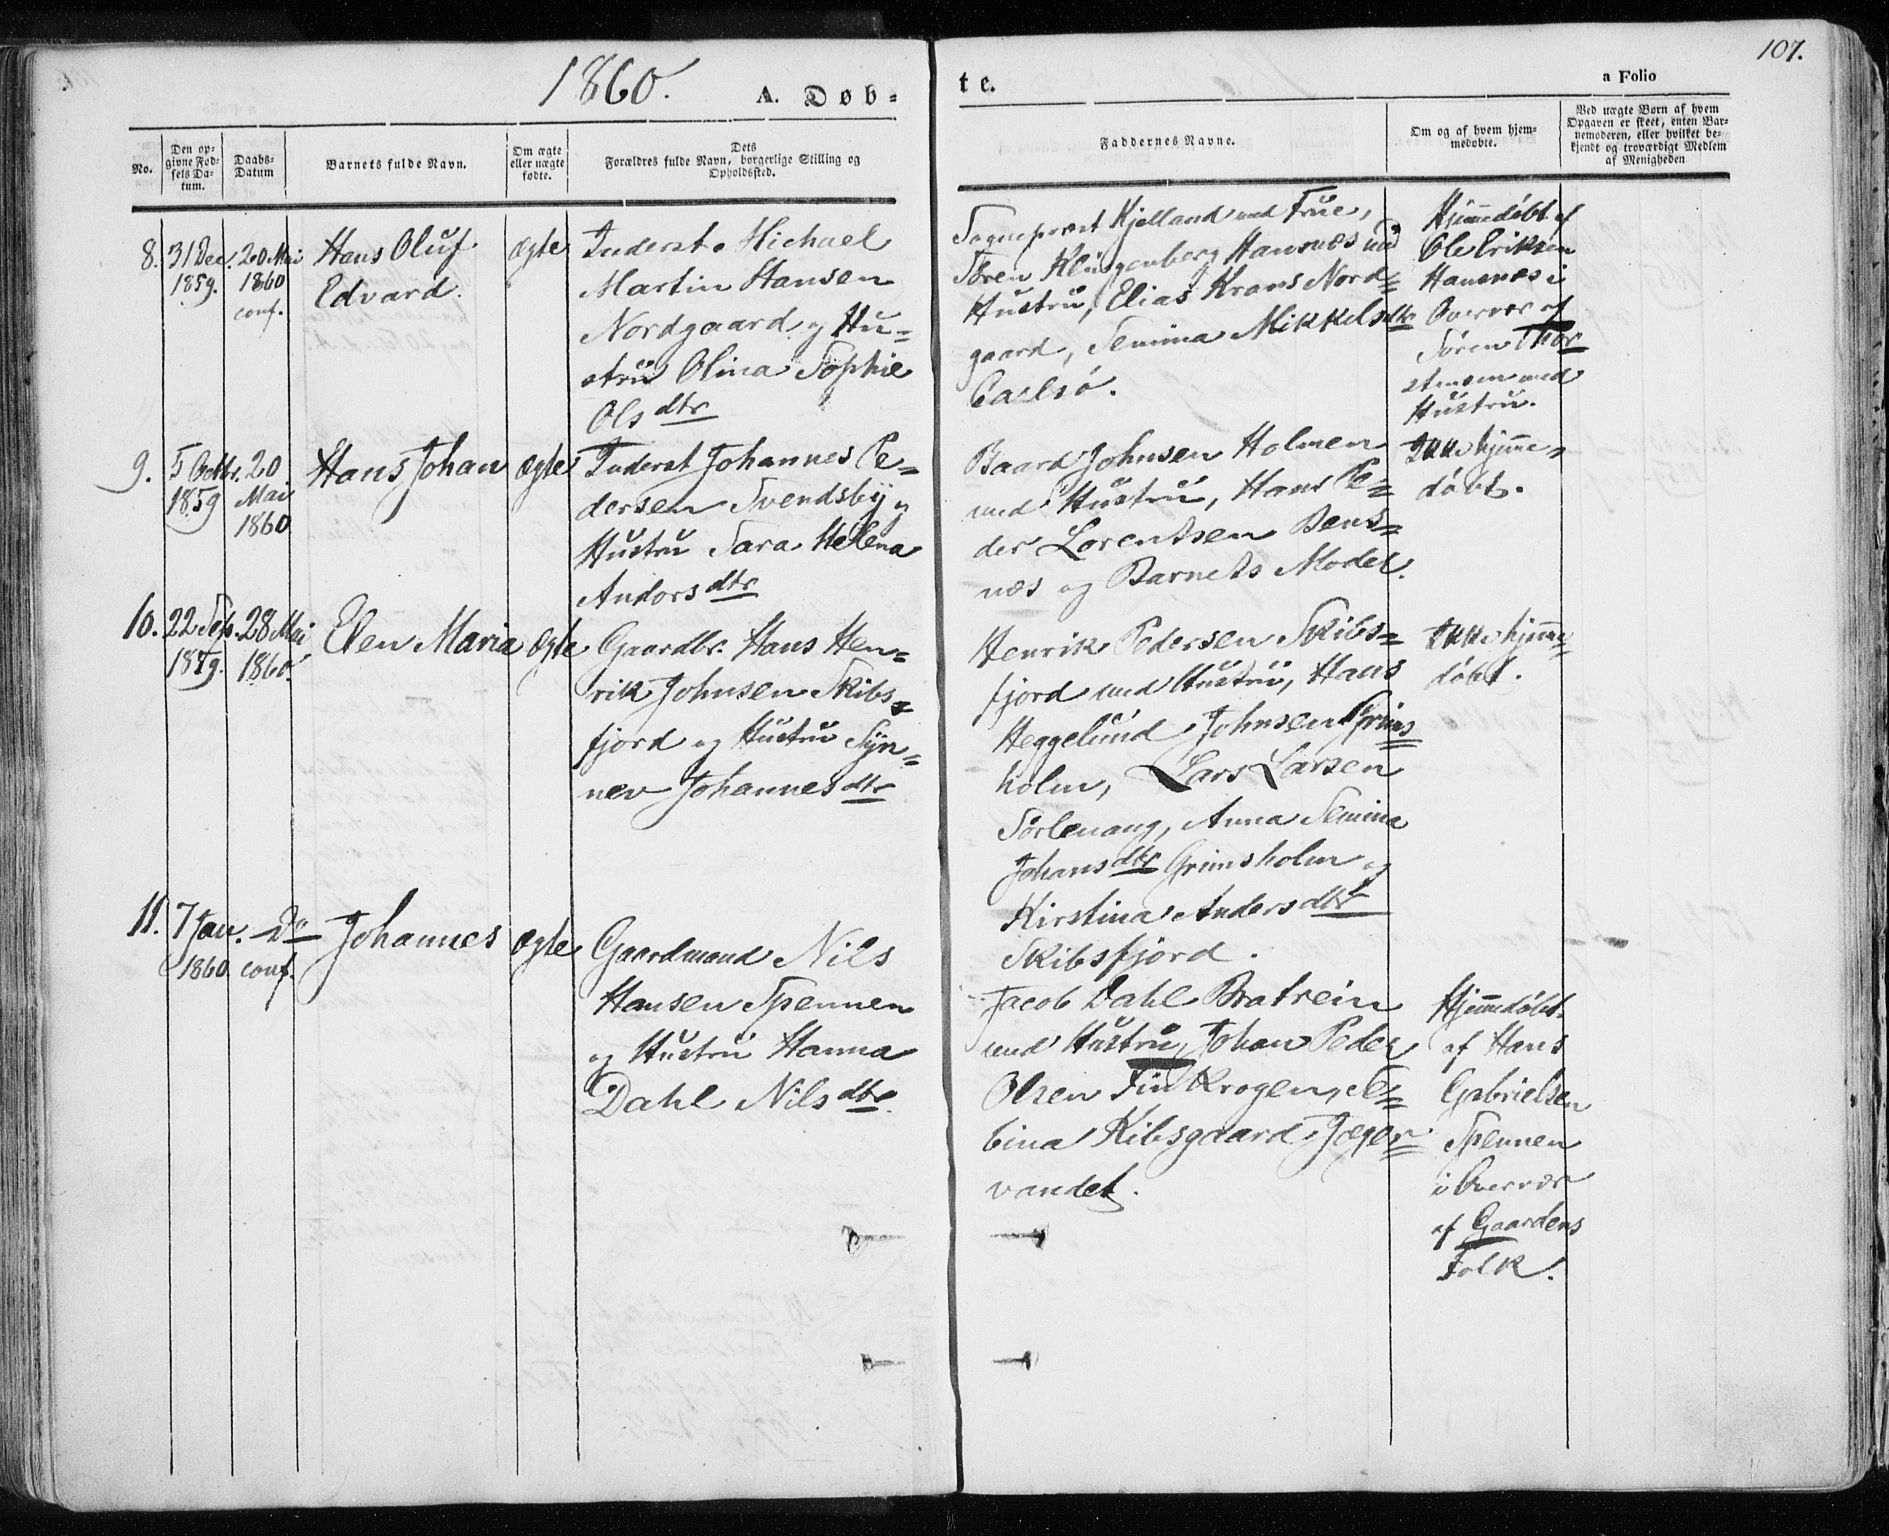 1860.
A. Døb-
te.
a Folio
107.
No.
Den op-
givne Fød-
sels Da-
tum.
Daabs-
Datum
Barnets fulde Navn.
Om ægte
eller uægte
fødte.
Dets
Forældres fulde Navn, borgerlige Stilling og
Opholdssted.
Faddernes Navne.
Om og af hvem hjem-
medøbte.
Ved uægte Børn af hvem
Opgaven er skeet, enten Bar-
nemoderen, eller hvilket be-
kjendt og troværdigt Medlem
af Menigheden
8.
31 Dec.
1859.
20 Mai
1860
conf.
Hans Oluf
Edvard.
ægte
Inderst Michael
Martin Hansen
Nordgaard og Hu-
stru Olina Sophie
Olsdtr
Sogneprest Kjelland med Frue,
Sören Klingenberg Hansnæs med
Hustru, Elias Krans Nord-
gaard, Semina Mikkelsdtr
Carlsö.
Hjemmedöbt af
Ole Eriksen
Hansnæs i
Overvær af
Sören Thor-
stensen med
Hustru.
9.
5 Octbr.
1859
20
Mai
1860
Hans Johan
ægte
Inderst Johannes Pe-
dersen Svendsby og
Hustru Sara Helena
Andorsdtr
Baard Johnsen Holmen
med Hustru, Hans Pe-
der Lorentsen Bens-
næs og Barnets Moder.
Ikke hjemme-
döbt.
10.
22 Sep.
1859.
28 Mai
1860.
Elen Maria
ægte
Gaardbr. Hans Hen-
rik Johnsen Skibs-
fjord og Hustru Syn-
nev Johannesdtr
Henrik Pedersen Skibs-
fjord med Hustru, Hans
Heggelund Johnsen Grims-
holm, Lars Larsen
Sörlenang, Anna Semina
Johansdtr Grimsholm og
Kirstina Andersdtr
Skibsfjord.
Ikke hjemme-
döbt.
11.
7 Jan.
1860.
Do
conf.
Johannes
ægte
Gaardmand Nils
Hansen Spennen
og Hustru Hanna
Dahl Nilsdtr.
Jacob Dahl Bratrein
med Hustru, Johan Peder
Olsen Finkrogen, El-
bina Kibsgaard Jæger-
vandet.
Hjemmedöbt
af Hans
Gabrielsen
Spennen
i Overvær
af Gaardens
Folk.